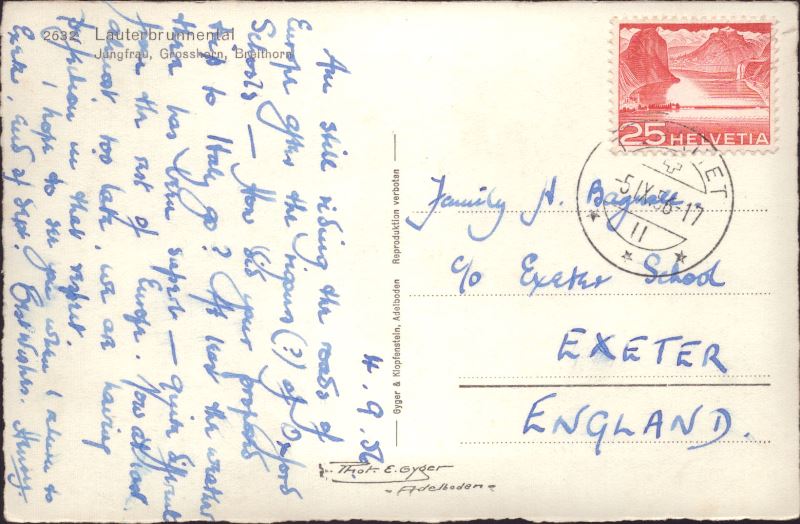 2632 Lauterbrunnental
Jungfrau, Grosshorn, Breithorn
4.9.56.
Am still riding the roads of
Europe after the rigours(?) of Oxford
Schools – How did your proposed
trip to Italy go? At least the weather
there has been superb – quite different
from the rest of Europe. Now at last,
almost too late, we are having
in that respect.
I hope to see you when I return to
Exeter, end of Sept. Best wishes. Henry.
Gyger & Klopfenstein, Adelboden Reproduktion verboten
Phot. E. Gyger
– Adelboden –
25 HELVETIA
-5.IX.56-17
11
Family H.
c/o Exeter School
EXETER
ENGLAND.